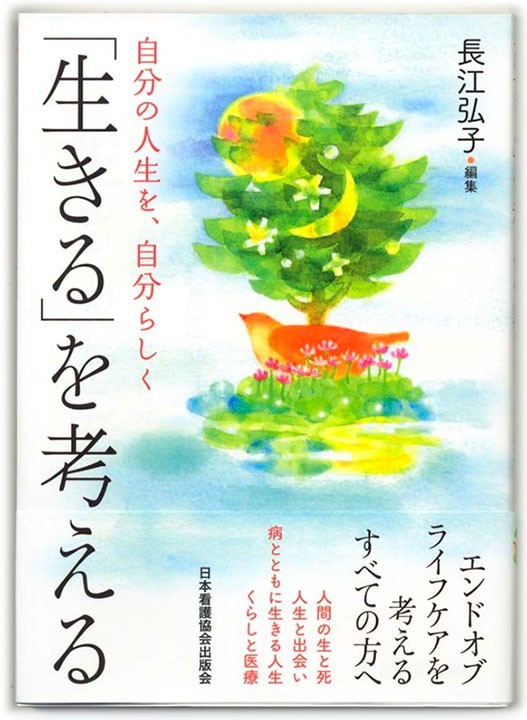 長江弘子・編集
自分の人生を、自分らしく
「生きる」を考える
エンドオブ
ライフケアを
考える
すべての方へ
人間の生と死
人生と出会い
病とともに生きる人生
くらしと医療
日本看護協会出版会